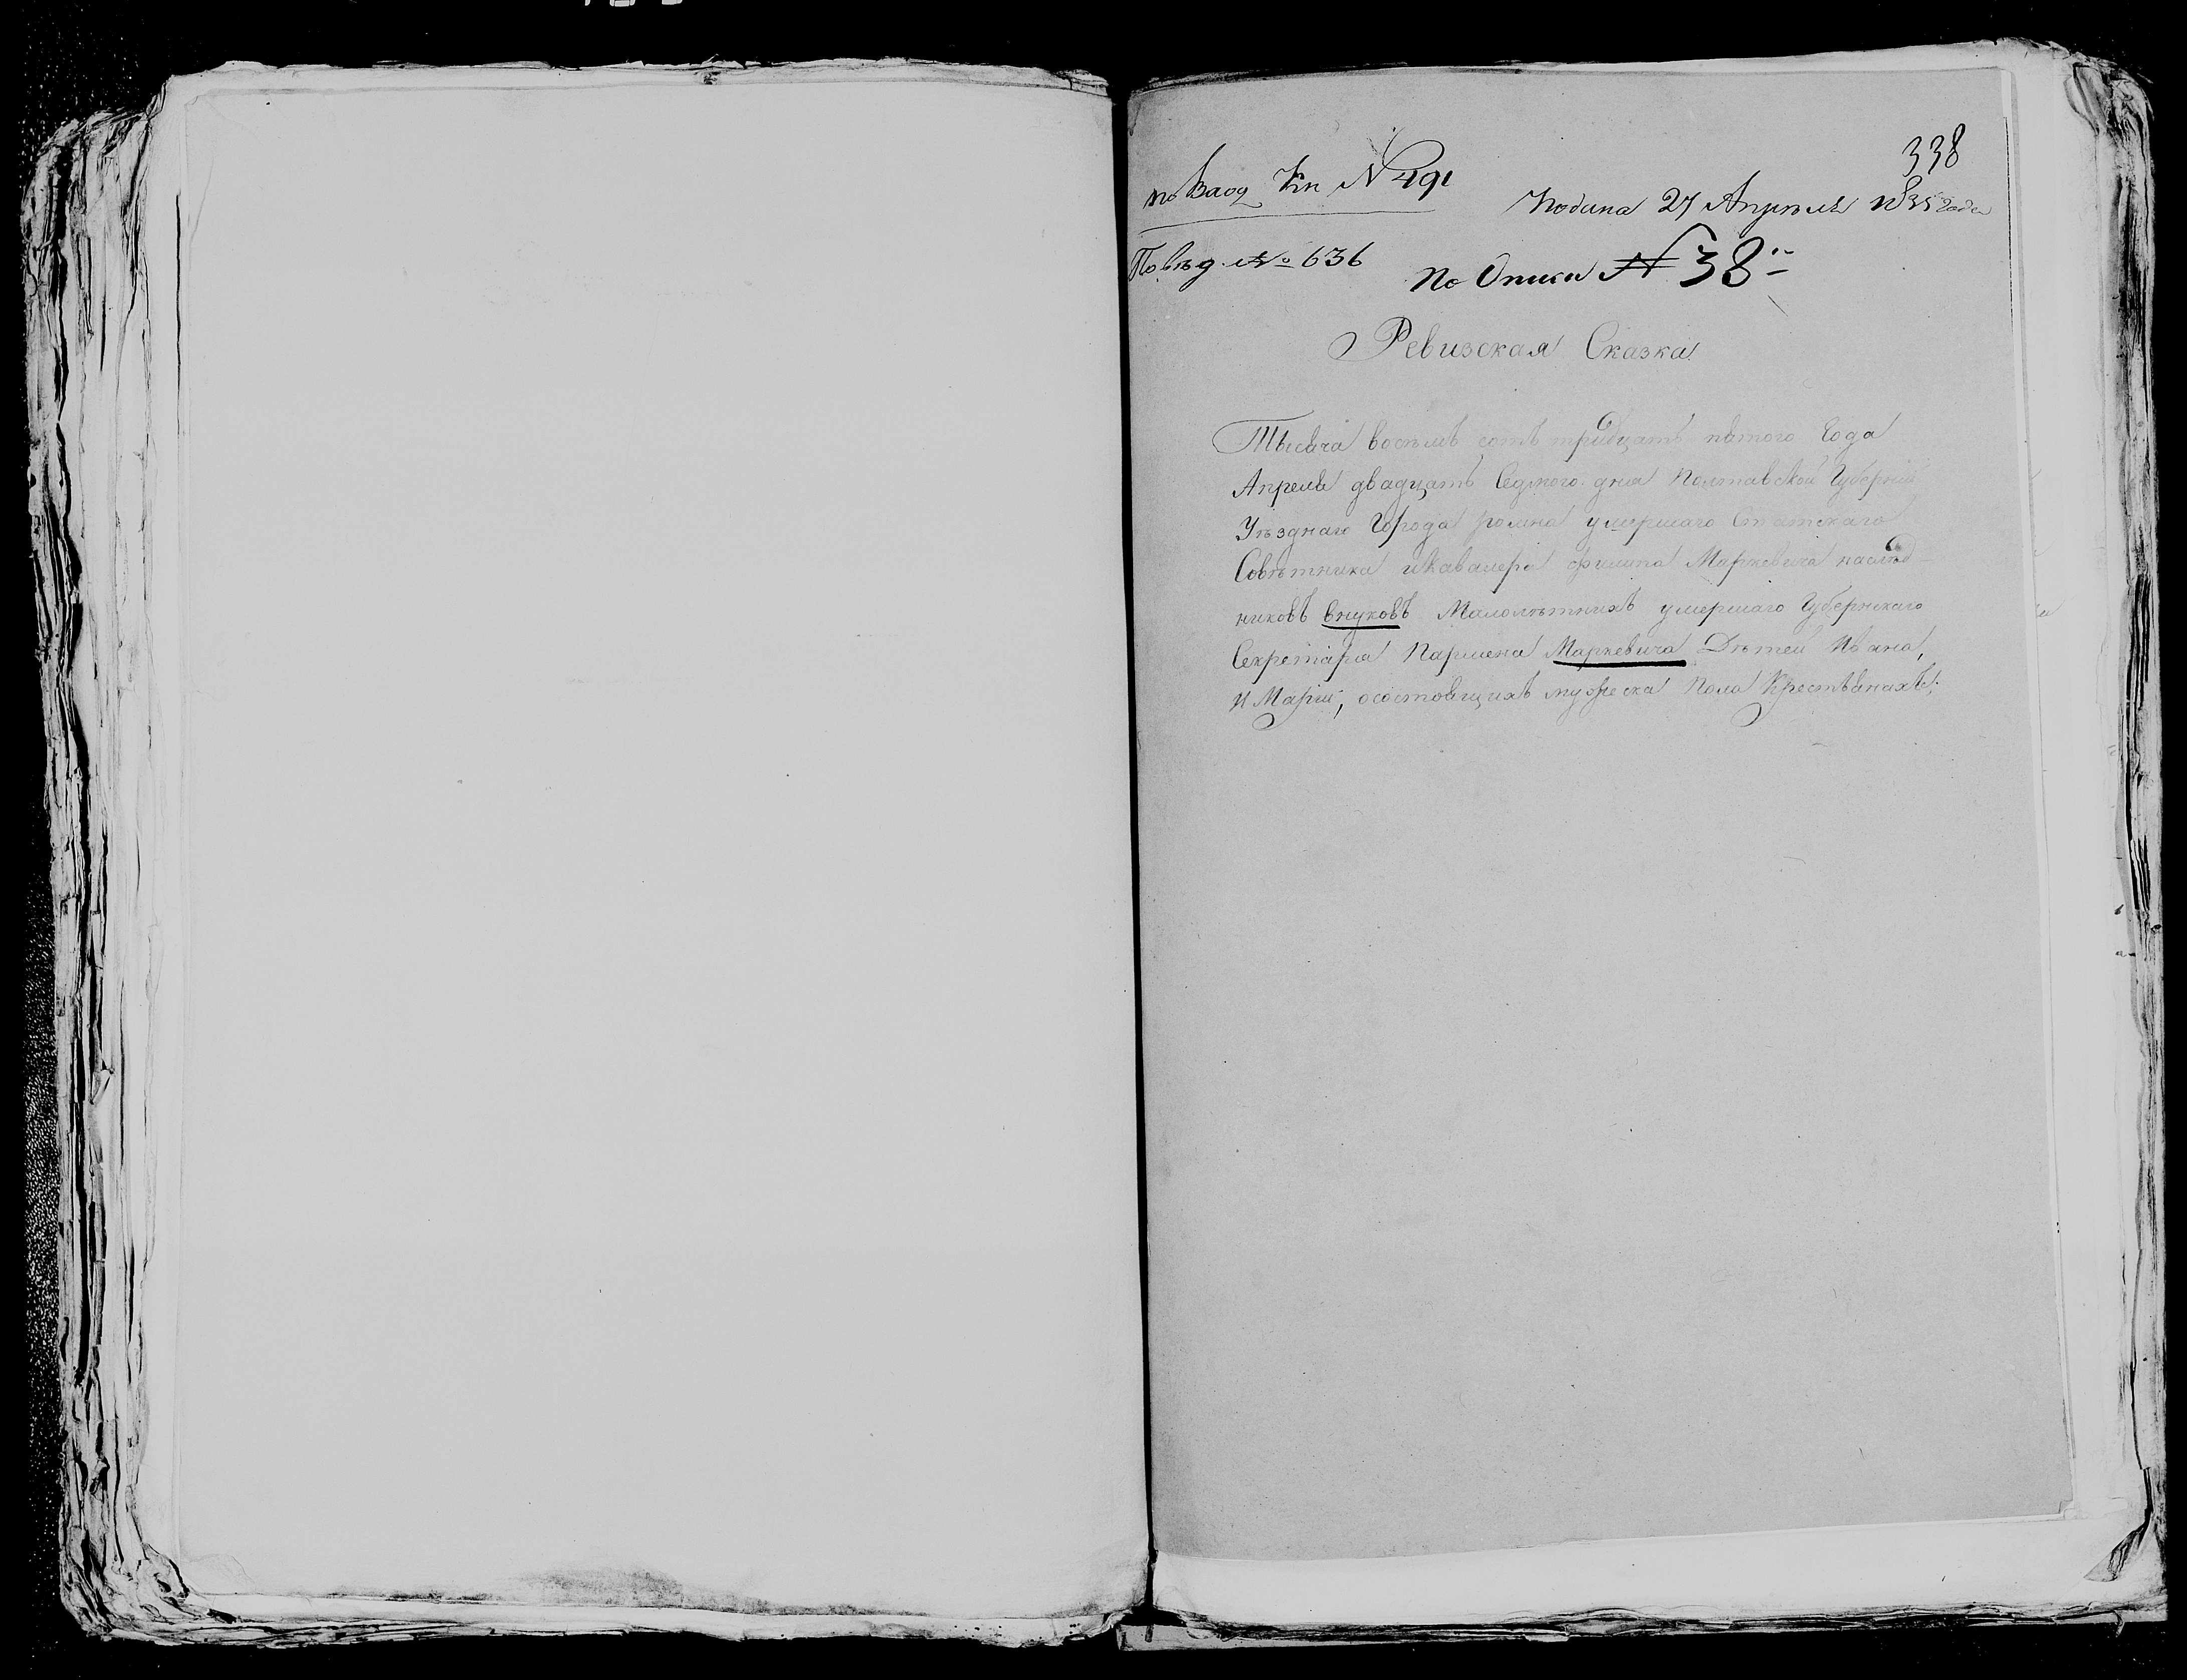 338
по Вход Кн № 491
Подана 27 Апрѣля 1835 года
По вѣд. № 636
По Описи № 38
Ревизская Сказка
Тысяча восѣмь сотъ тридцать пятого Года
Апреля двадцать Седмого дня Полтавской Губернии
Уѣзднаго Города ромна умершаго Статскаго
Совѣтника и Кавалера филипа Маркевича наслѣд-
никовъ внуковъ Малолѣтнихъ умершаго Губернскаго
Секретаря Пармена Маркевича Дѣтей Ивана,
и Марии, осостоящихъ мужеска Пола Крестьянахъ;